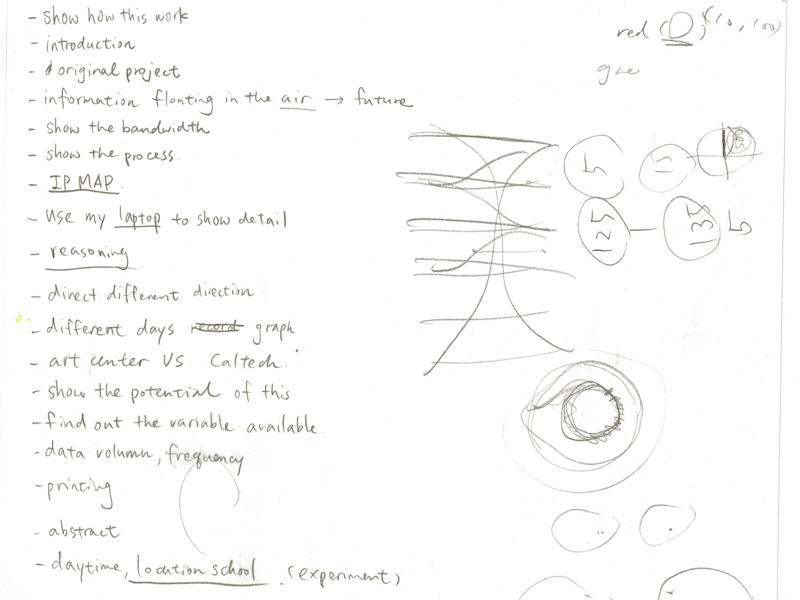 - show how this work
- introduction
- original project
- information floating in the air → future
- show the bandwidth
- show the process.
- IP MAP.
- use my laptop to show detail
- reasoning
- direct different direction
- different days record graph
- art center VS. Caltech.
- show the potential of this
- find out the variable available
- data volumn, frequency
- printing
- abstract
- daytime, location school (experiment)
red
5 15
125 — 135 5